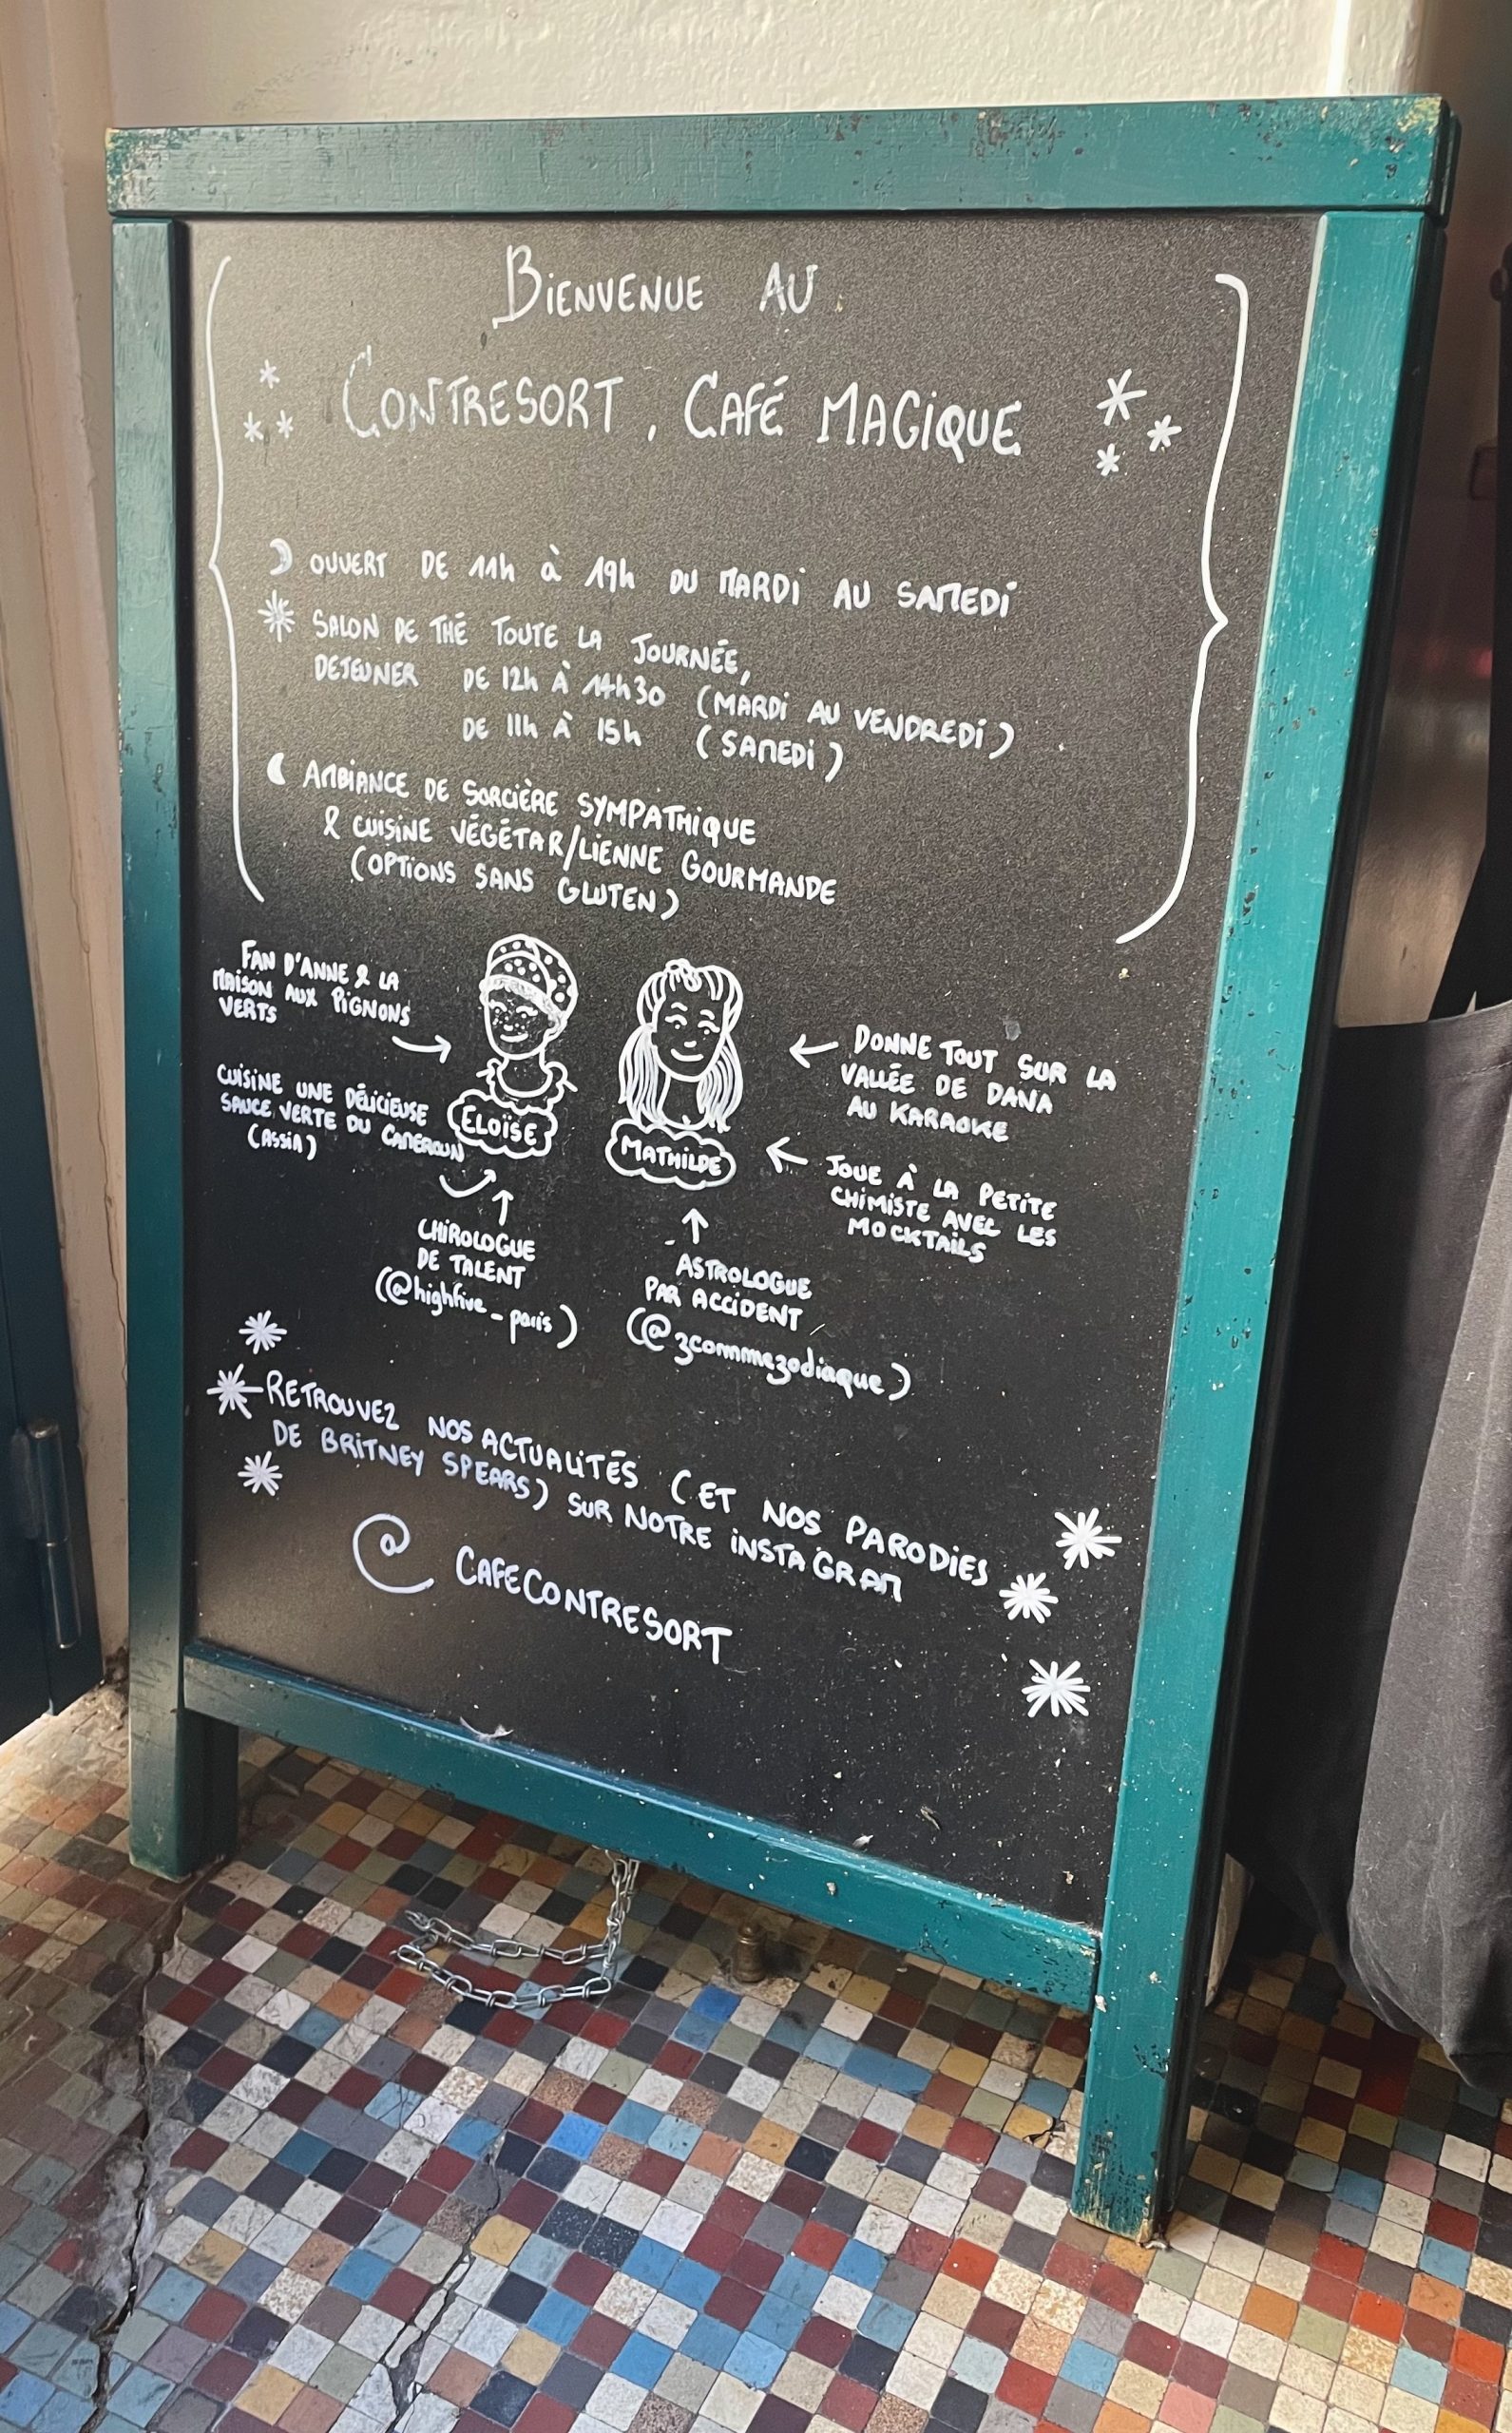 BIENVENUE AU
CONTRESORT, CAFÉ MAGIQUE
OUVERT DE 11h à 19h DU MARDI AU SAMEDI
SALON DE THÉ TOUTE LA JOURNÉE,
DEJEUNER DE 12h À 14h30 (MARDI AU VENDREDI)
DE 11h À 15h (SAMEDI)
AMBIANCE DE SORCIÈRE SYMPATHIQUE
& CUISINE VÉGÉTAR/LIENNE GOURMANDE
(OPTIONS SANS GLUTEN)
FAN D'ANNE & LA
MAISON AUX PIGNONS
VERTS
CUISINE UNE DÉLICIEUSE
SAUCE VERTE DU CAMEROUN
(ASSIA)
ELOÏSE
CHIROLOGUE
DE TALENT
(@highfive_paris)
MATHILDE
DONNE TOUT SUR LA
VALLÉE DE DANA
AU KARAOKE
JOUE À LA PETITE
CHIMISTE AVEC LES
MOCKTAILS
ASTROLOGUE
PAR ACCIDENT
(@zcommezodiaque)
RETROUVEZ NOS ACTUALITÉS (ET NOS PARODIES
DE BRITNEY SPEARS) SUR NOTRE INSTAGRAM
@ CAFECONTRESORT